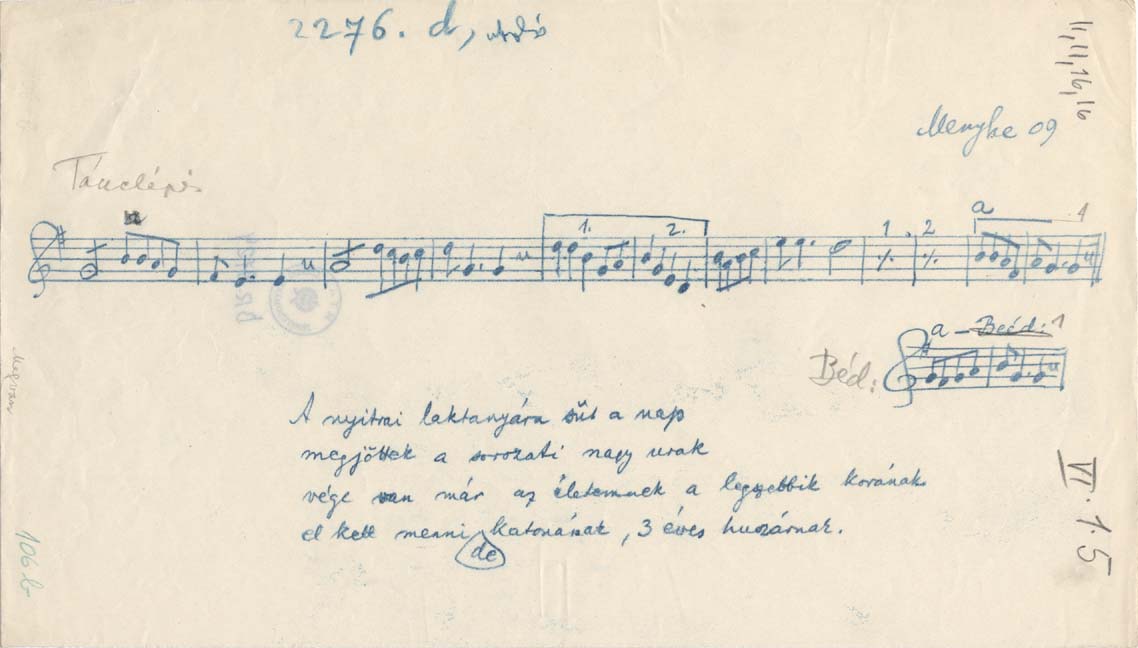 2276. d, utolsó
11, 11, 16, 16
Menyhe 09
Tánclépés
1.
2.
1.
2
a
1
a - Beéd: 1
Béd:
A nyitrai laktanyára süt a nap
megjöttek a sorozati nagy urak
vége van már az életemnek a legszebbik korának
el kell menni katonának, 3 éves huszárnak.
de
Megvan
106 b
VI. 1. 5